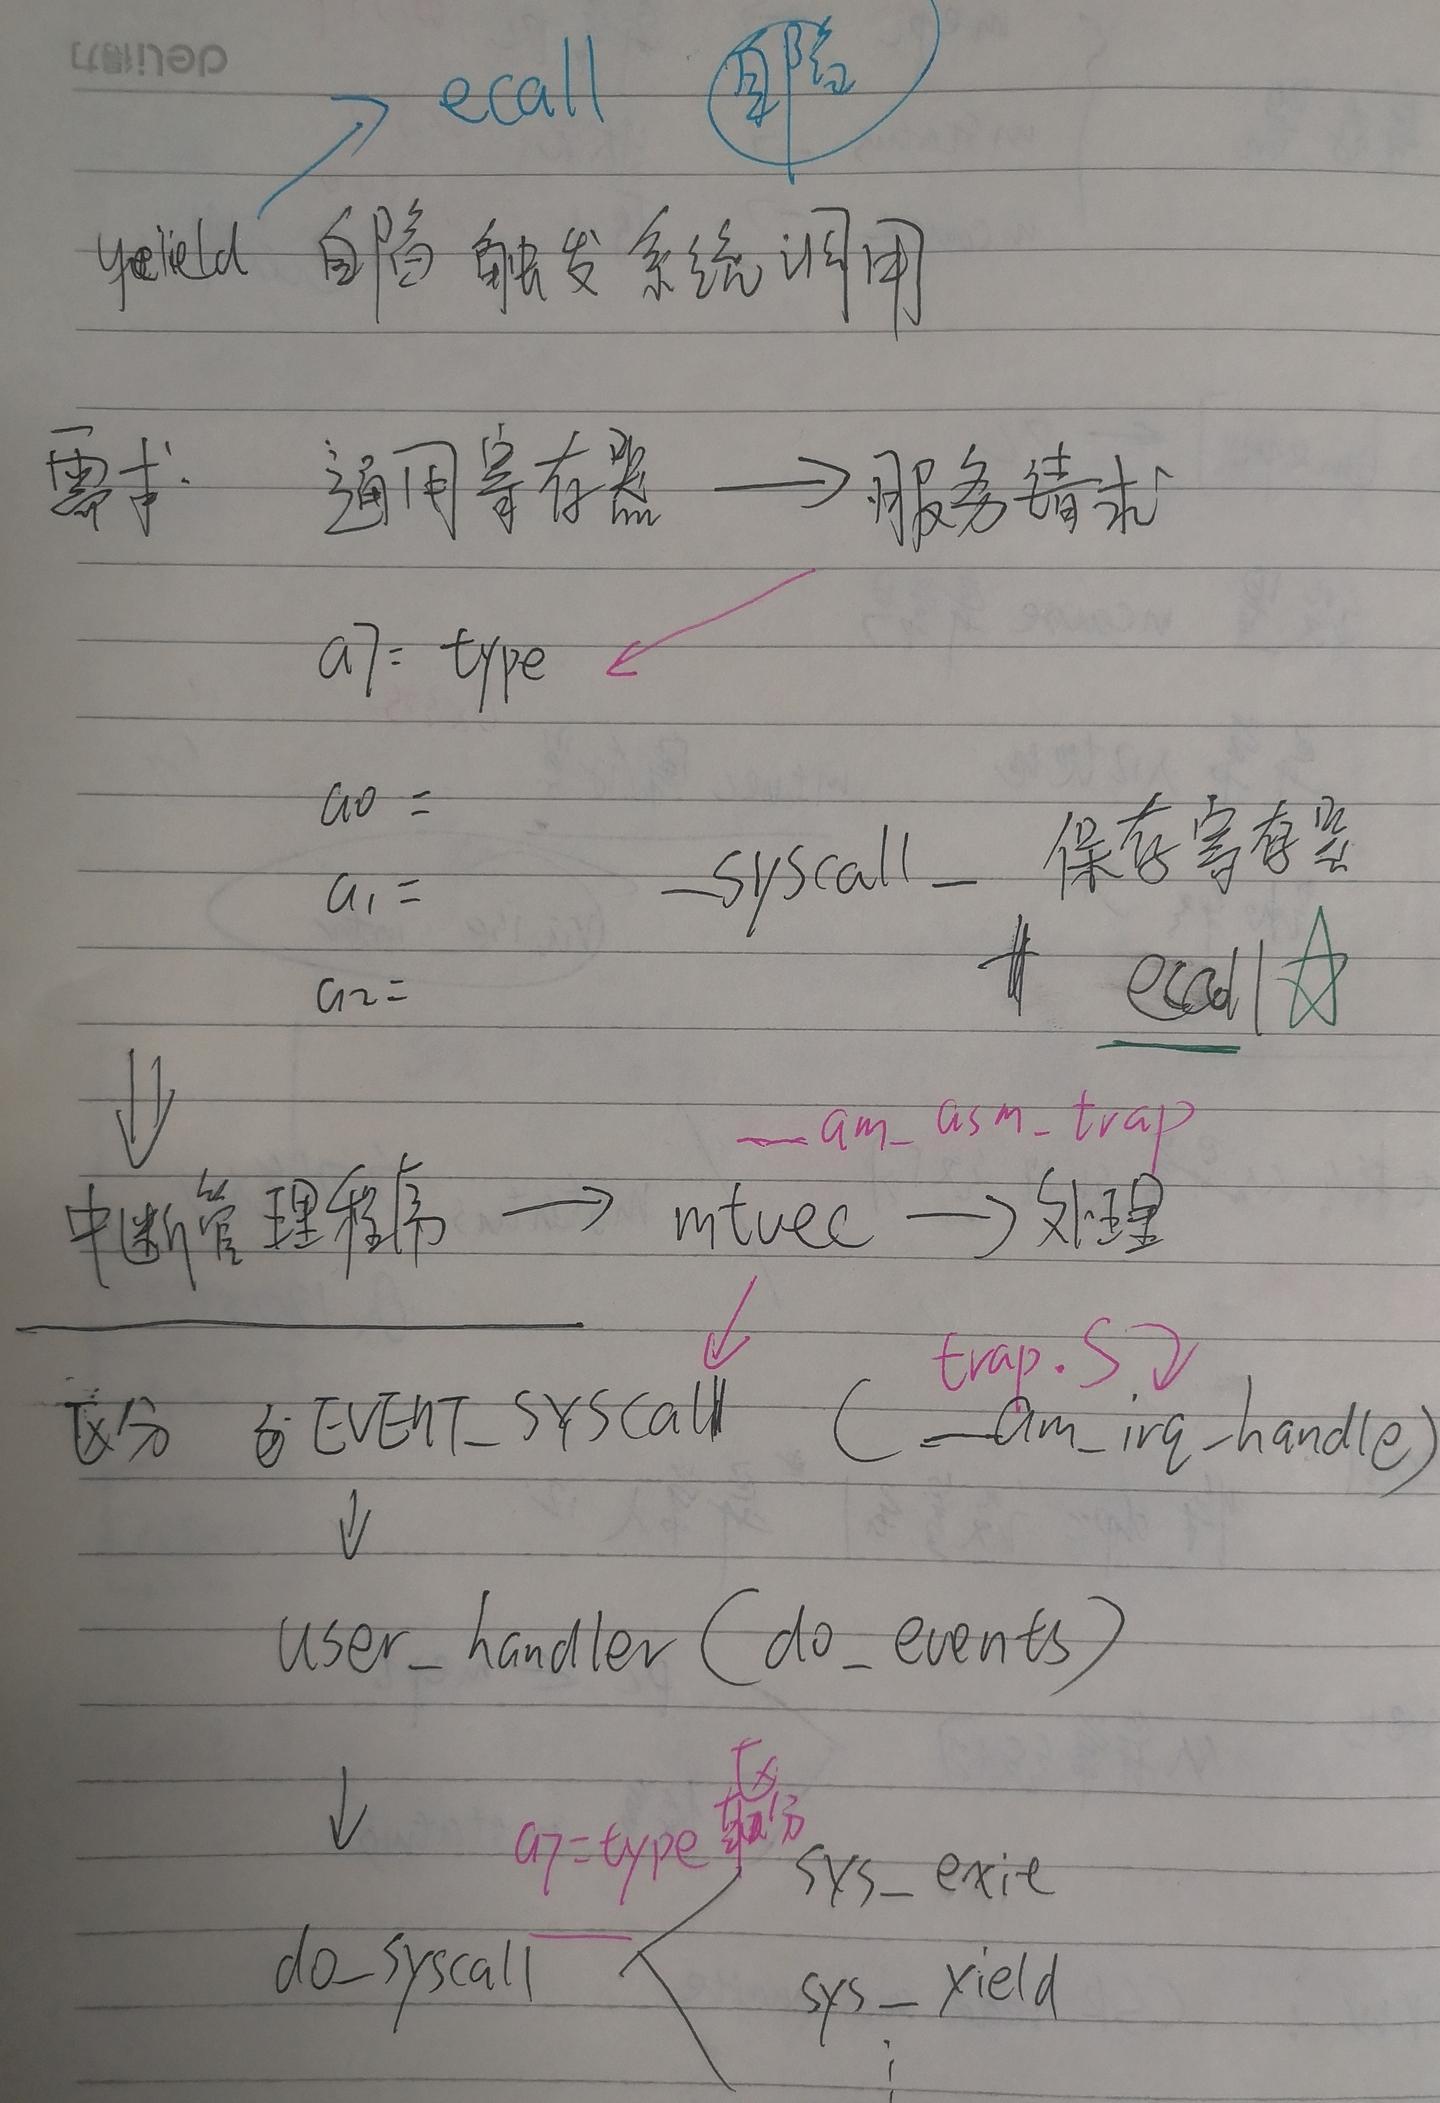 deli得力
ecall 自陷
yeield 自陷 触发系统调用
需求. 通用寄存器 → 服务请求
a7 = type
a0 =
a1 =
_syscall_ 保存寄存器
a2 =
ecall
__am_asm_trap
中断管理程序 → mtvec → 处理
trap.S
区分 EVENT_syscall (__am_irq_handle)
user_handler (do_events)
区
a7=type 分
sys_exit
do_syscall
sys_yield